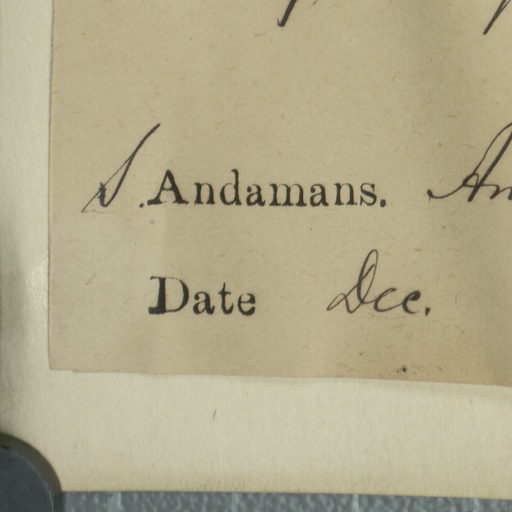 S. Andamans. An
Date Dec.